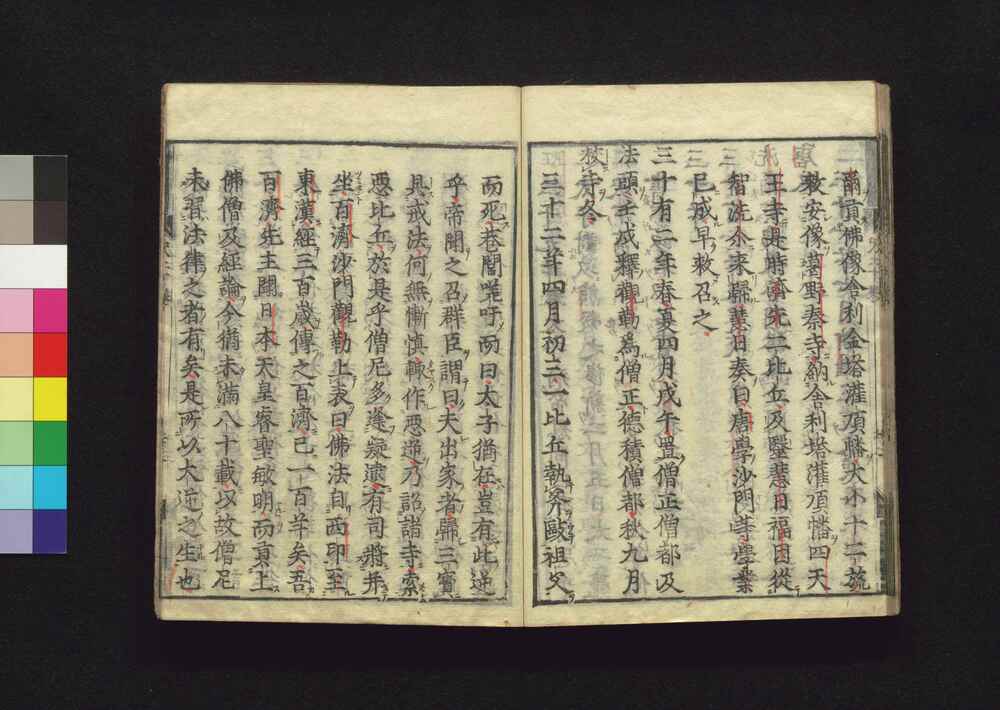 爾貢佛像舎利金塔灌頂幡大小十二旒
敕安像墓野秦寺納舎利塔灌頂幡四天
王寺是時齊先二比丘及醫慧日福因從
智洗尒来歸慧日奏曰唐學沙門等學業
已成早敕召之
三十有二年春夏四月戊午置僧正僧都及
法頭主戒釋觀勒為僧正德積僧都秋九月
挍寺冬
三十二年四月初三一比丘執斧敺祖父
而死巷閭嗟吁而曰太子猶在豈有此逆
乎帝聞之召群臣謂曰夫出家者歸三寶
具戒法何無慚慎輙作惡逆乃詔諸寺索
惡比丘於是乎僧尼多逢疑逮有司將并
坐百濟沙門觀勒上表曰佛法自西印至
東漢經三百歳傳之百濟已一百年矣吾
百濟先主聞日本天皇睿聖敏明而貢上
佛僧及經論今猶未滿八十載以故僧尼
未習法律之者有矣是所以大逆之生也